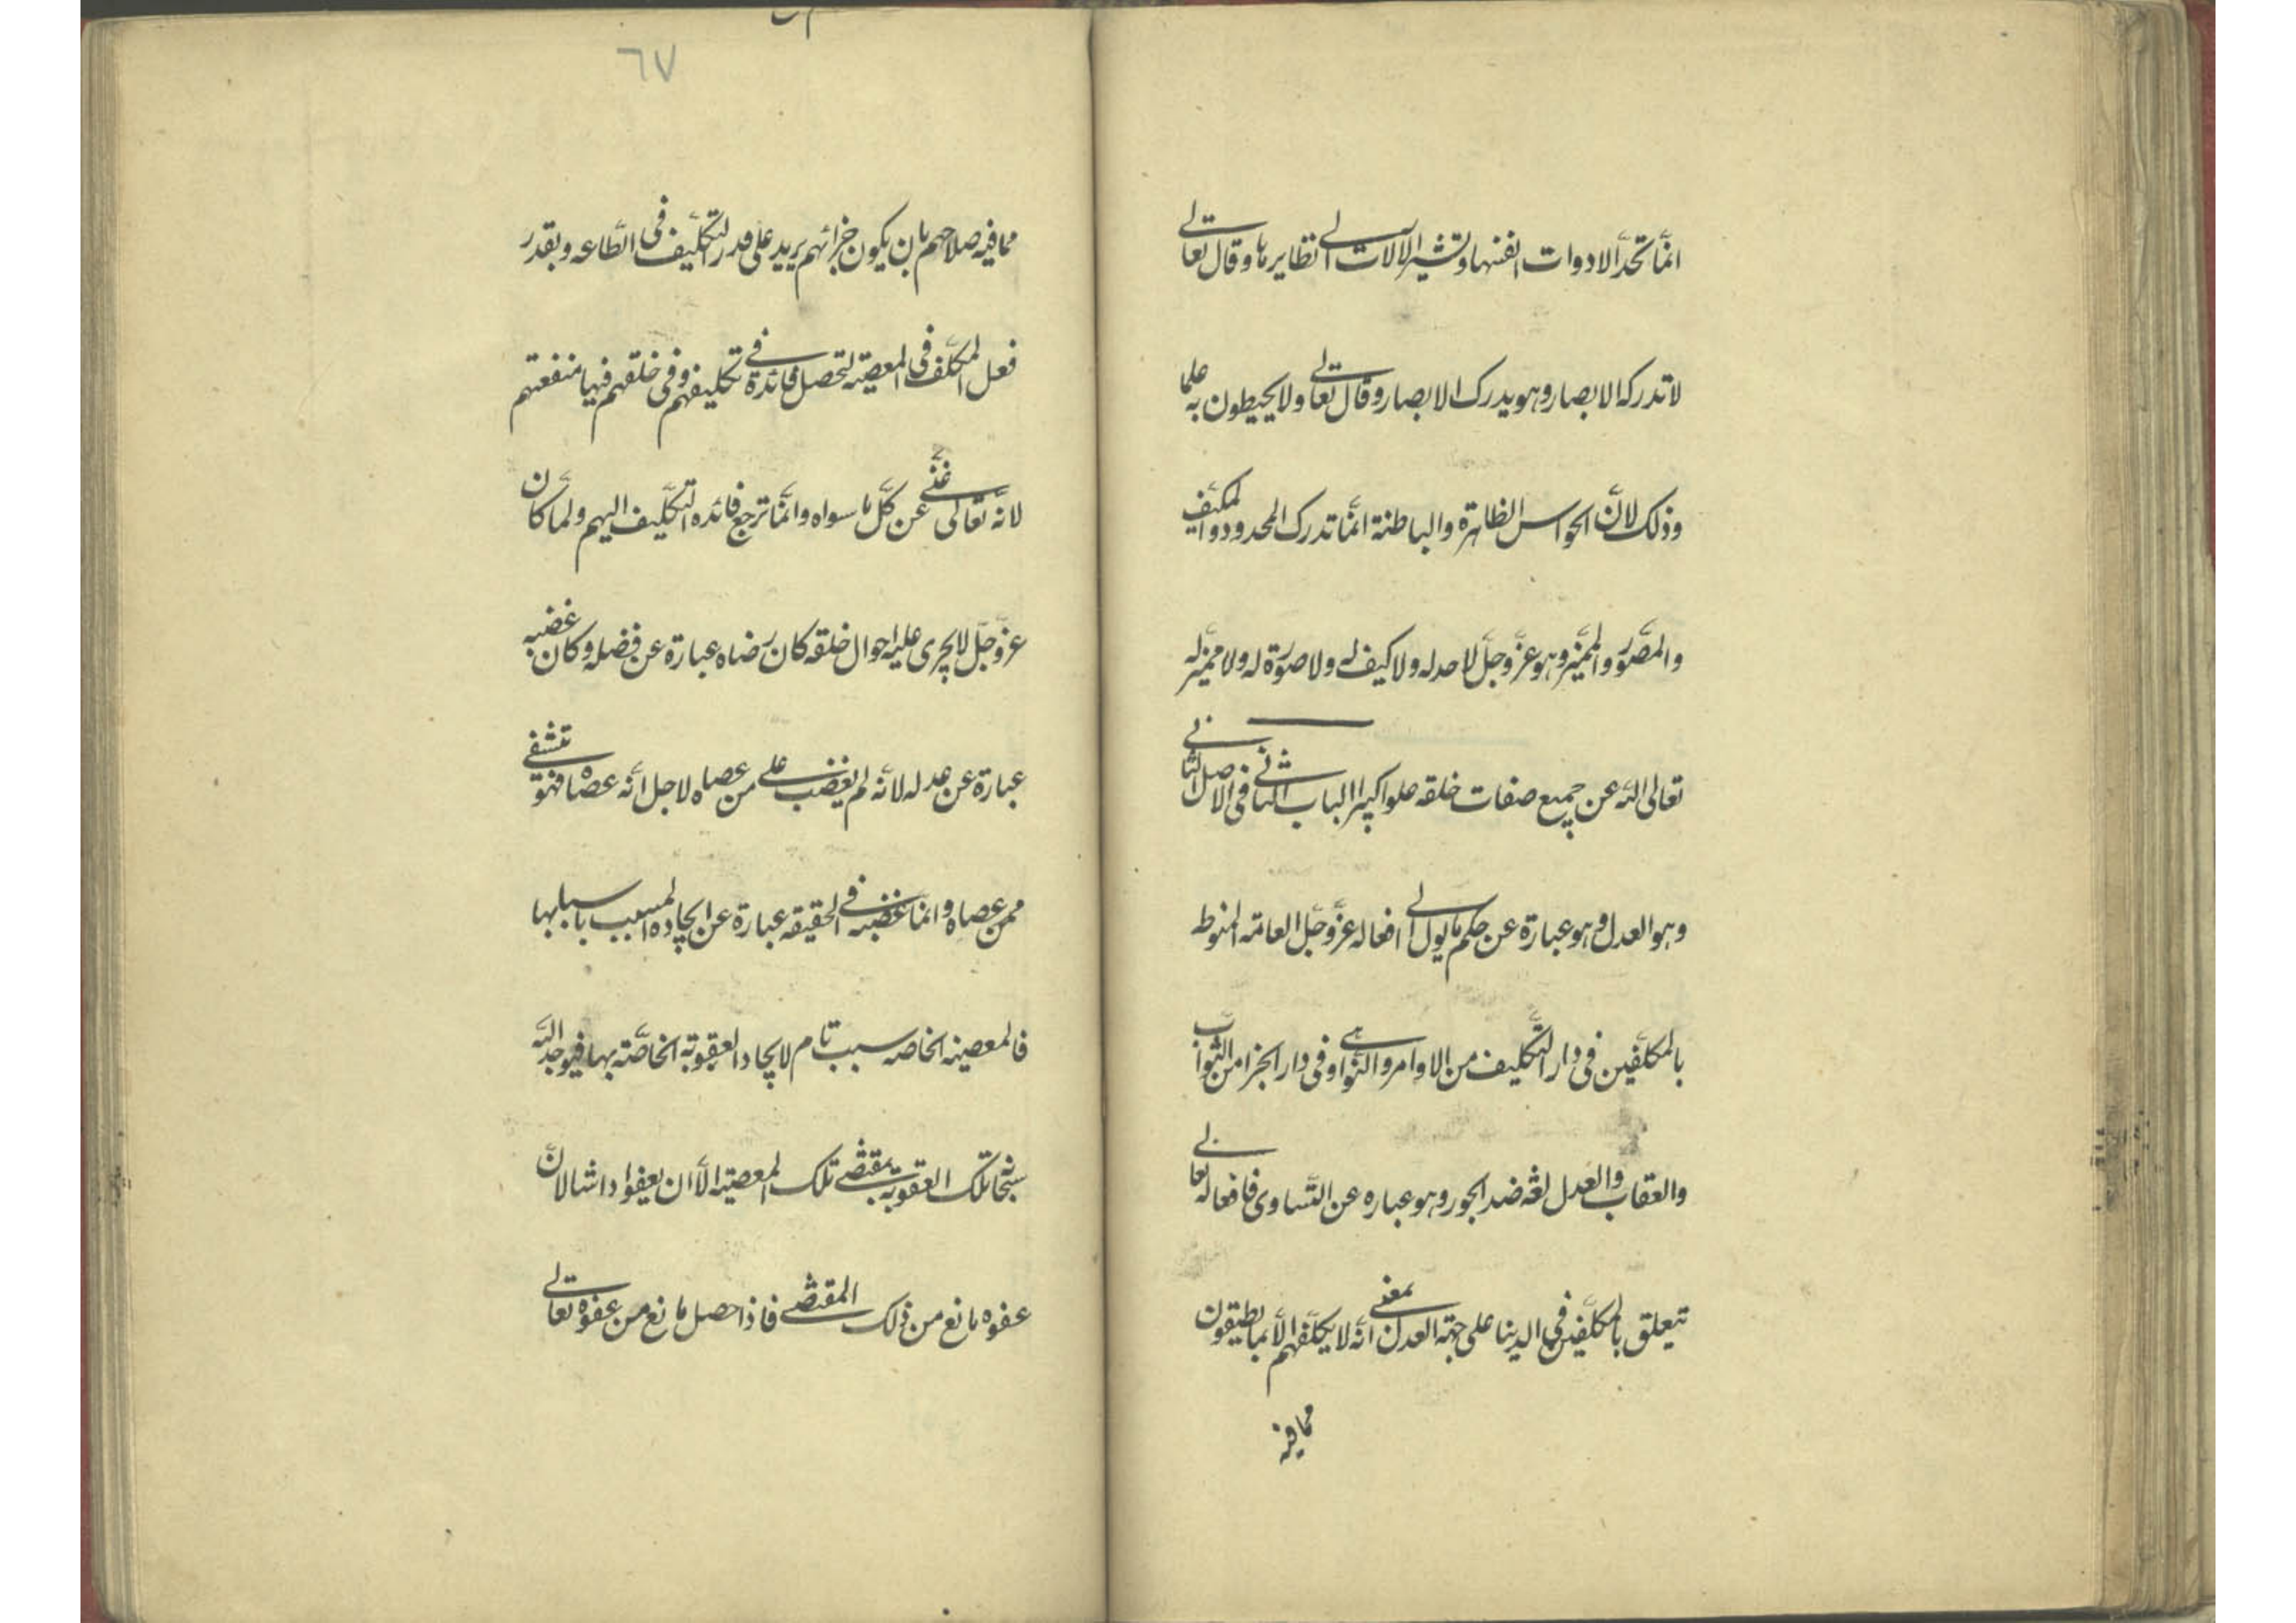 انّما تحدّ الادوات انفسها وتشير الالات الى نظايرها وقال تعالى
لا تدركه الابصار وهو يدرك الابصار وقال تعالى ولا يحيطون به علما
وذلك لانّ الحواس الظاهرة والباطنة انّما تدرك المحدود والمكيّف
والمصّور والمميّز وهو عزّ وجلّ لا حد له ولا كيف له ولا صورة له ولا مميّز له
تعالى اللّه عن جميع صفات خلقه علوا كبيرا الباب الثانى فى الاصل الثانى
وهو العدل وهو عبارة عن حكم ما يول الى افعاله عزّ وجلّ العامّه المنوط
بالمكلّفين فى دار التّكليف من الاوامر والنّواهى وفى دار الجزا من الثّواب
والعقاب والعدل لغة ضد الجور وهو عباره عن التّساوى فافعاله تعالى
تتعلق بالمكلّفين فى الدينا على جهة العدل بمعنى انّه لا يكلّفهم الّا بما يطيقون
ممافيه
٦٧
ممافيه صلاحهم بان يكون جزائهم يزيد على قدر التّكليف فى الطّاعه وبقدر
فعل المكلّف فى المعصيته لتحصل فائدة فى تكليفهم وفى خلقهم فيها منفعتهم
لانّه تعالى غنّى عن كلّ ما سواه وانّما ترجع فائده التّكليف اليهم ولمّا كان
عزّ وجلّ لا يجرى عليه احوال خلقه كان رضاه عبارة عن فضله وكان غضبه
عبارة عن عدله لانّه لم يغضب على من عصاه لاجل انّه عصاه فهو تتشفى
ممن عصاه وانّما غضبه فى الحقيقه عبارة عن ايجاده المسبب باسبابها
فالمعصيته الخاصه سبب تام لايجاد العقوبته الخاصّته بها فيوجد اللّه
سبحانه تلك العقوبة بمقتضى تلك المعصيته الّا ان يعفوا داشا لانّ
عفوه مانع من ذلك المقتضى فاذا حصل مانع من عفوه تعالى